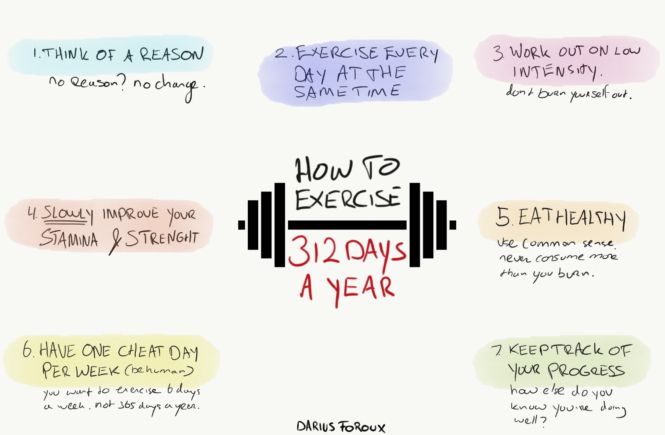 1. THINK OF A REASON
no reason? no change.
2. EXERCISE EVERY
DAY AT THE
SAME TIME
3. WORK OUT ON LOW
INTENSITY.
don't burn yourself out.
HOW TO
EXERCISE
312 DAYS
A YEAR
4. SLOWLY IMPROVE YOUR
STAMINA & STRENGHT
5. EAT HEALTHY
Use common sense.
never consume more
than you burn.
6. HAVE ONE CHEAT DAY
PER WEEK (be human)
you want to exercise 6 days
a week. not 365 days a year.
7. KEEP TRACK OF
YOUR PROGRESS
how else do you
know you're doing
well?
DARIUS FOROUX